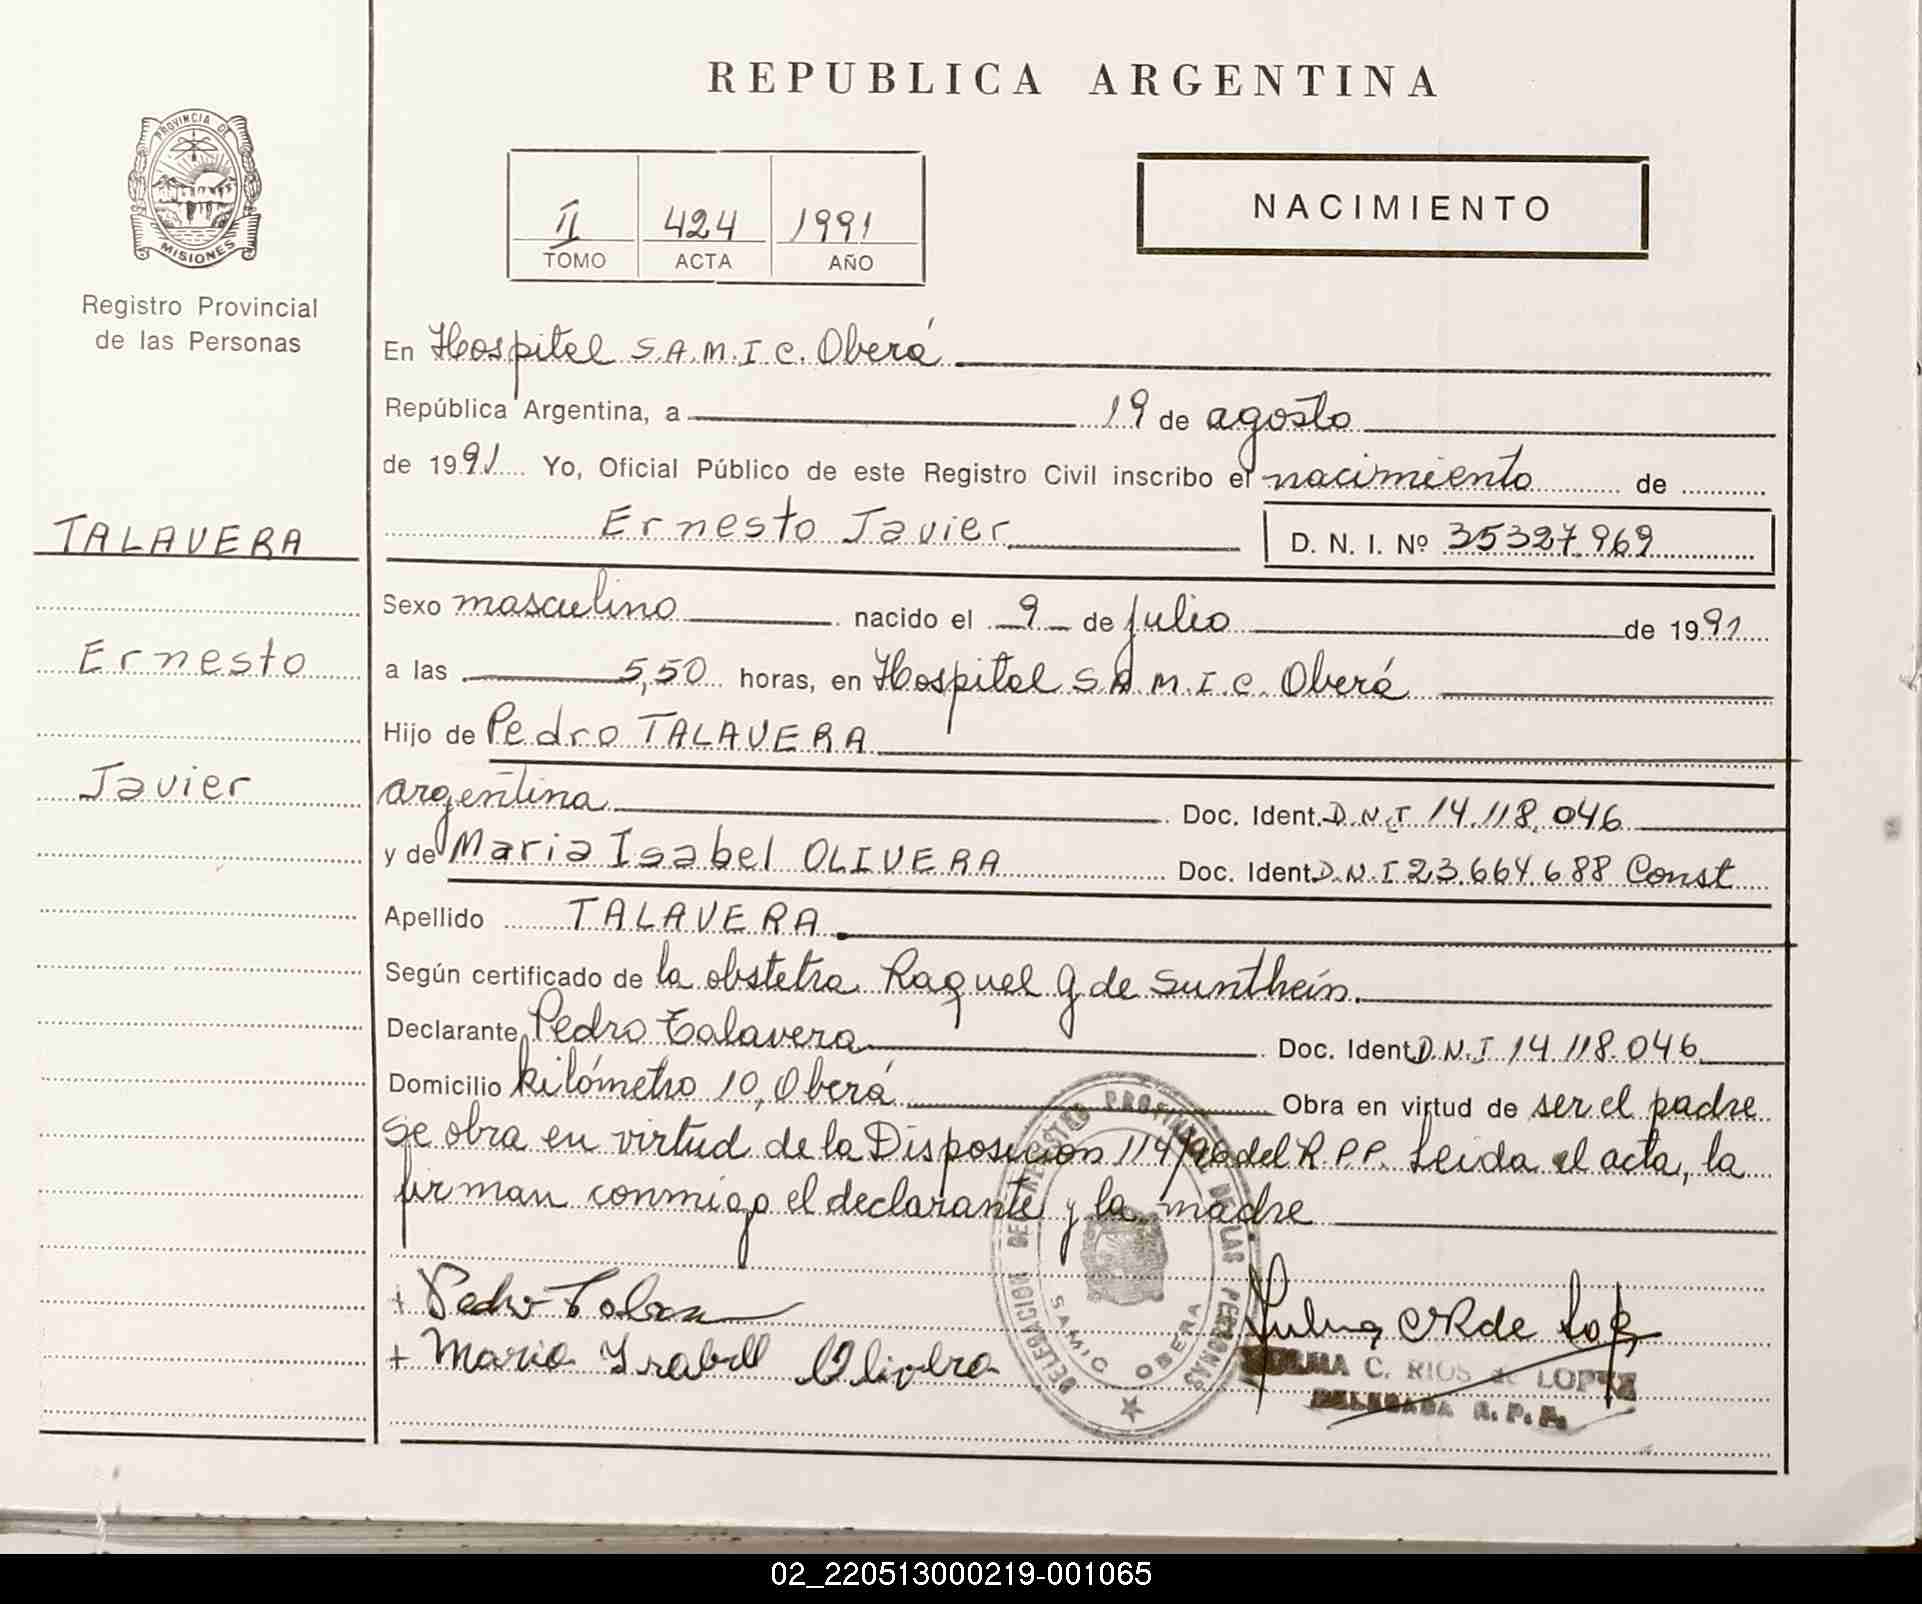 REPUBLICA ARGENTINA
PROVINCIA DE
MISIONES
Registro Provincial
de las Personas
II 424 1991
TOMO ACTA AÑO
NACIMIENTO
En Hospital S.A.M.I.C. Oberá
República Argentina, a 19 de agosto
de 1991 Yo, Oficial Público de este Registro Civil inscribo el nacimiento de
Ernesto Javier D. N. I. Nº 35327.969
TALAVERA
Sexo masculino nacido el 9 de julio de 1991
Ernesto
a las 5,50 horas, en Hospital S.A.M.I.C. Oberá
Hijo de Pedro TALAVERA
Javier
argentina Doc. Ident. D.N.I 14.118.046
y de Maria Isabel OLIVERA Doc. Ident. D.N.I 23.664.688 Const
Apellido TALAVERA
Según certificado de la obstetra Raquel G de Sunthein.
Declarante Pedro Talavera Doc. Ident. D.N.I 14.118.046
Domicilio kilómetro 10, Oberá Obra en virtud de ser el padre
Se obra en virtud de la Disposicion 114/96 del R.P.P. Leida el acta, la
firman conmigo el declarante y la madre
DELEGACION DEL REGISTRO PROVINCIAL DE LAS PERSONAS
SAMIC OBERA
+ Pedro
+ Maria Isabel Olivera
C. RIOS de LOPEZ
DELEGADA R. P. P.
02_220513000219-001065